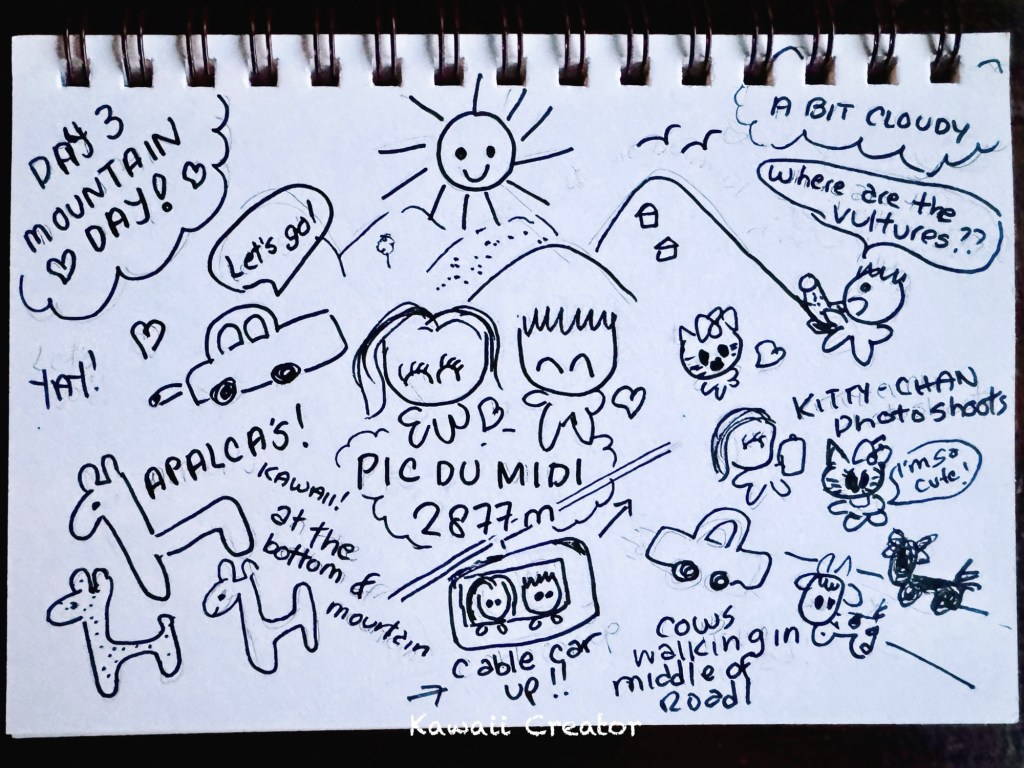 DAY 3
MOUNTAIN
DAY!
A BIT CLOUDY
Where are the
vultures??
Let's go!
YAY!
KITTY-CHAN
Photoshoots
I'm so
cute!
APALCA'S!
KAWAII!
at the
bottom &
mountain
PIC DU MIDI
2877m
cable car
up!!
COWS
walking in
middle of
Road!
Kawaii Creator